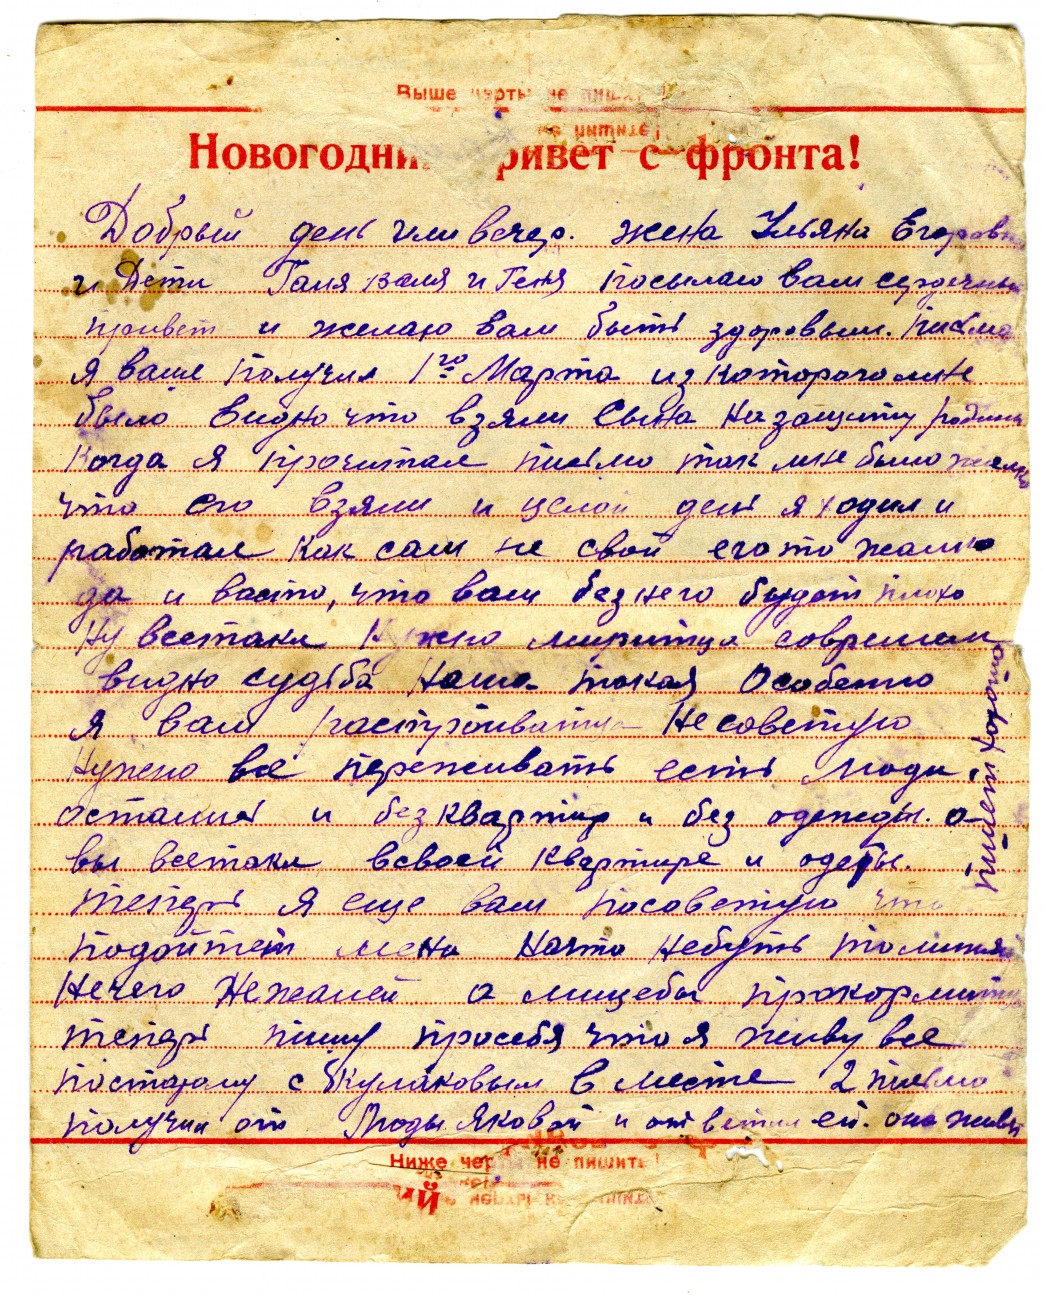 Выше черты не пишит
Новогодни ривет с фронта!
Добрый день или вечер. жена Ульяна Егоровн
и Дети Галя валя и Геня посылаю вам сердечны
привет и желаю вам быть здоровым. письмо
я ваше получил 1го Марта из которого мне
было видно что взяли Сына на защиту родины
когда я прочитал письмо так мне было жалко
что его взяли и целой день я ходил и
работал как сам не свой его то жалко
да и васто, что вам без него будет плохо
Ну всетаки Нужно миритца совремем
видно судьба наша такая Особенно
я вам растраиватца не советую
Нужно все переживать есть люди
остались и без квартир и без одежды. а
вы всетаки в своей квартире и одеты.
теперь я еще вам посоветую что
подойтет мена начто небуть
Нечего Не жалей а лищебы прокормитца
теперь пишу просебя что я живу все
постарому с Кулаковым в месте 2 письмо
получил от Люды Яковой и ответил ей. она живы
пишет хорошо
Ниже черты не пишите!